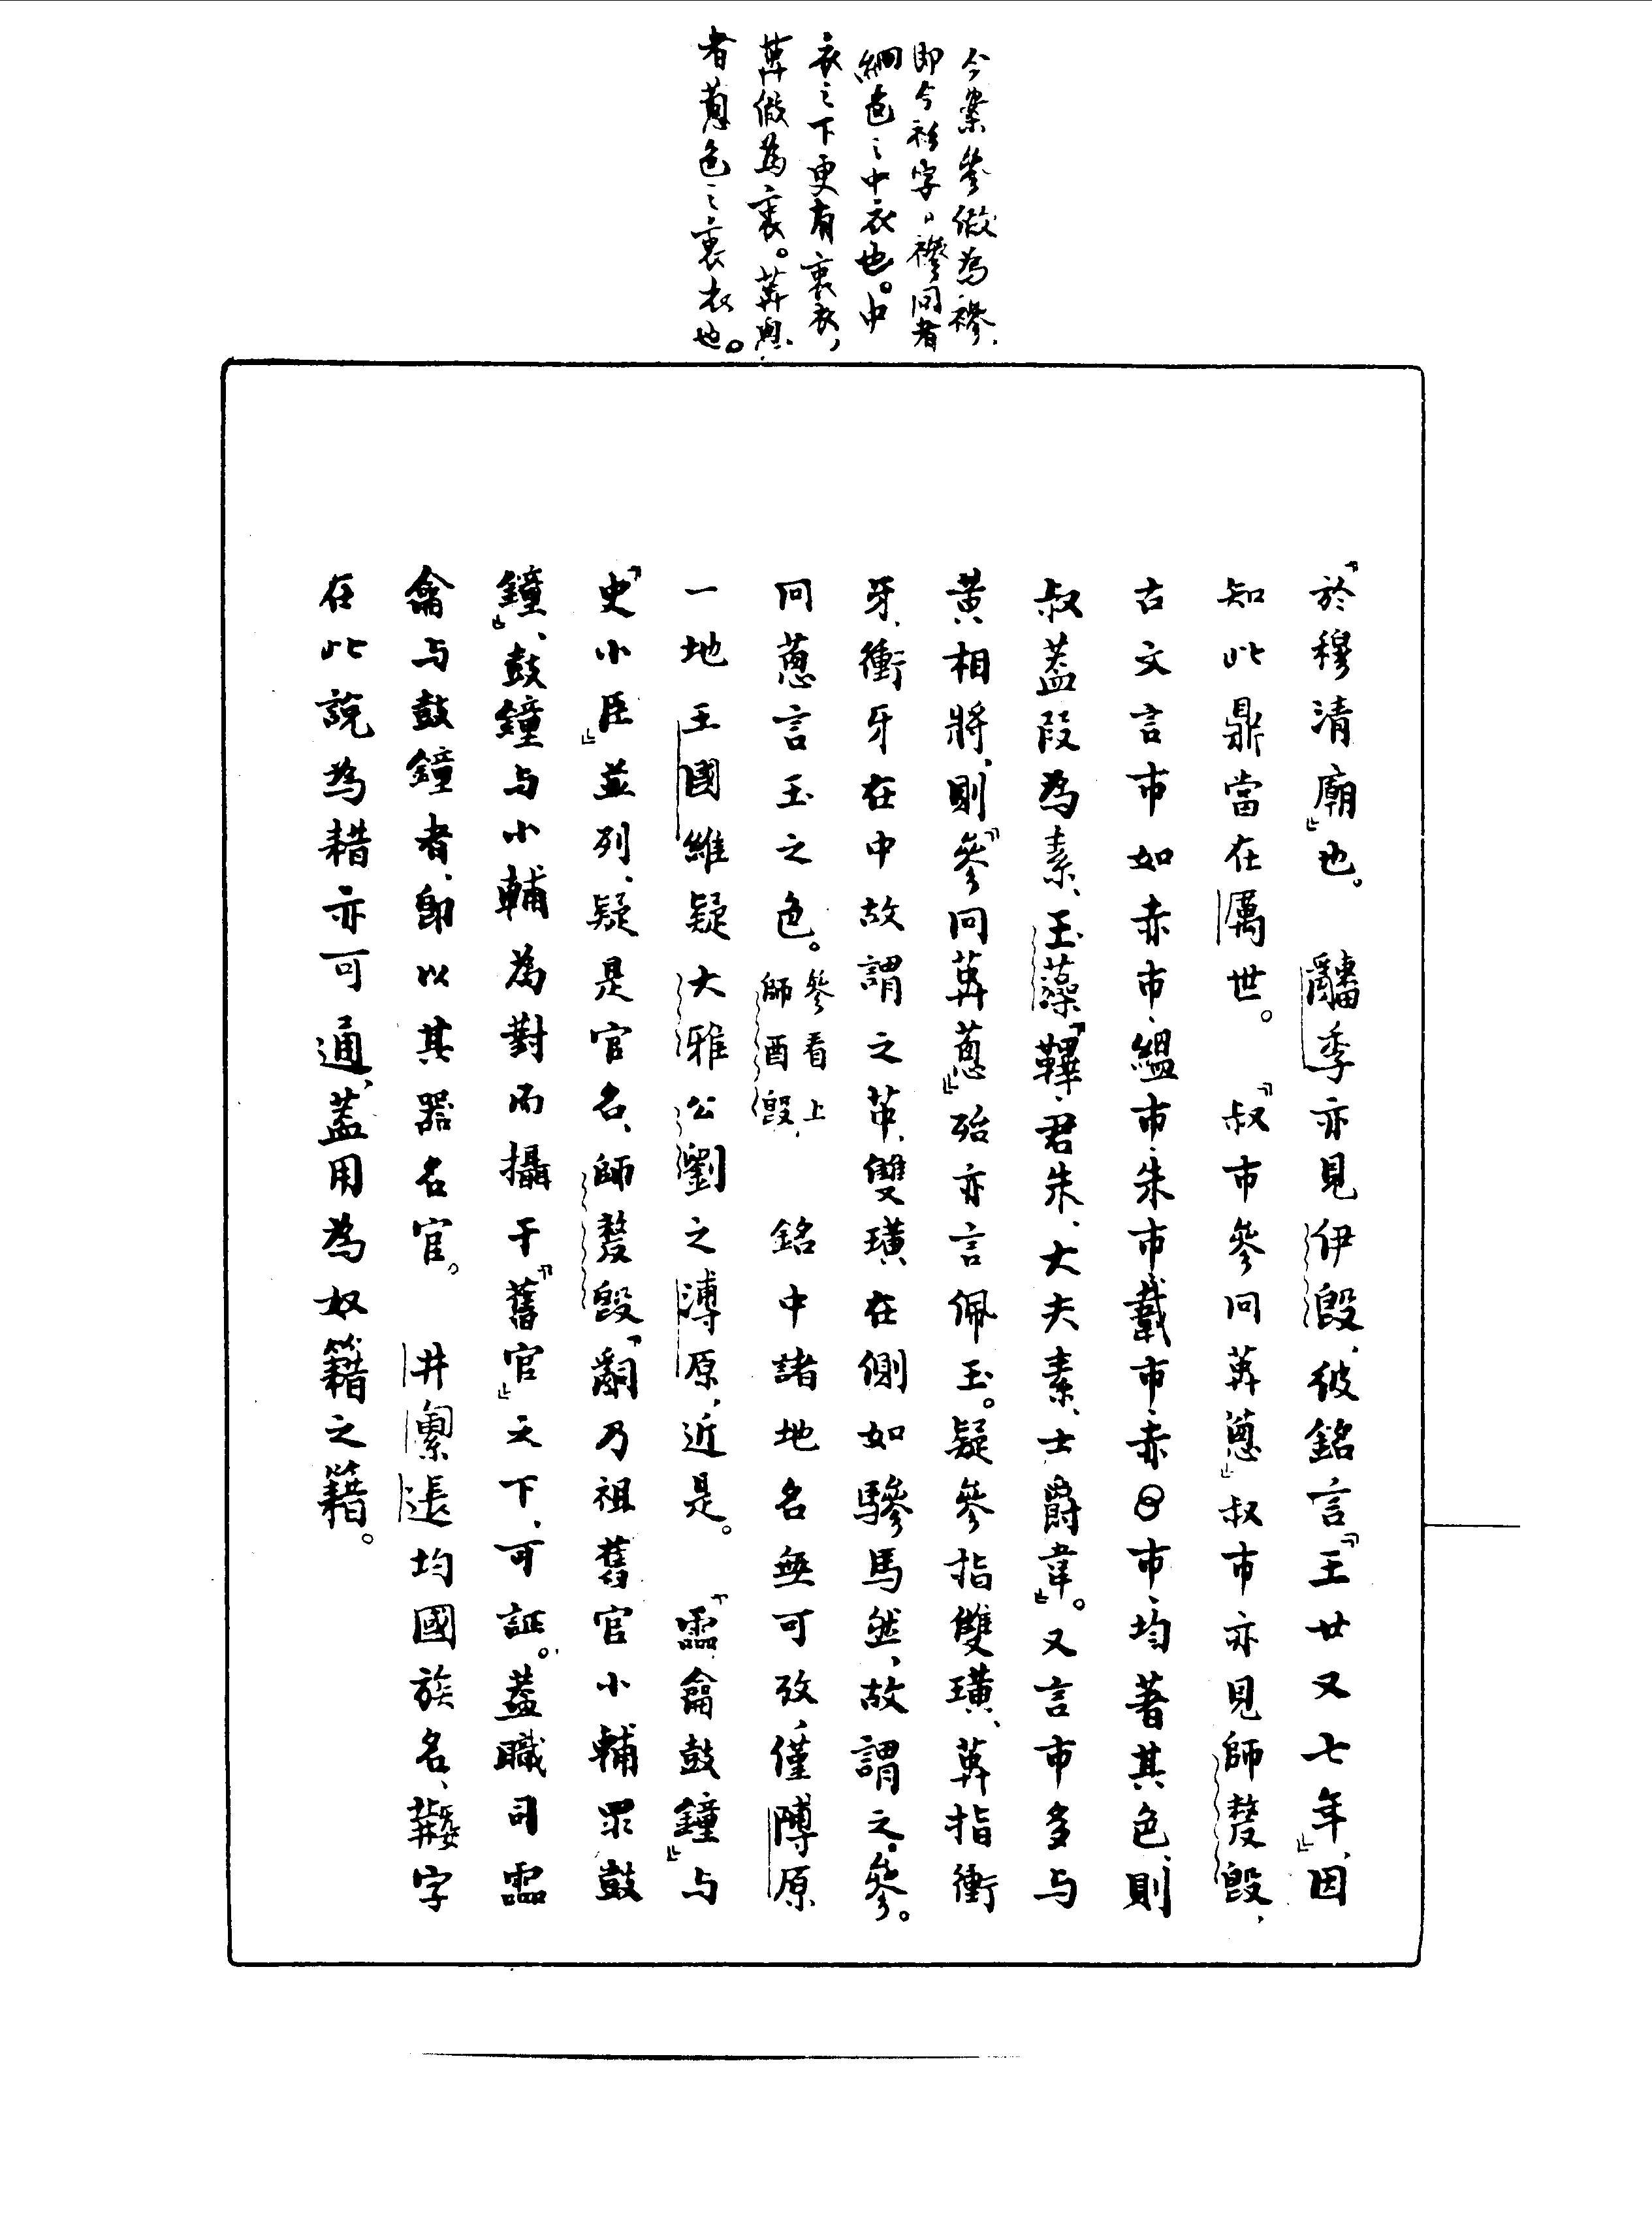 今案參假為襂、
即今衫字。襂冋者
絅色之中衣也。中
衣之下更有裏衣，
葊假為裏。葊悤
者蔥色之裏衣也。
『於穆清廟』也。 𤔲季亦見伊𣪘，彼銘言『王廿又七年』，因
知此鼎當在厲世。 『叔市參冋葊蔥』叔市亦見師𠩺𣪘，
古文言市如赤市、縕市、朱市、䵼市、赤市、均著其色，則
叔蓋叚為素、玉藻『韠、君朱、大夫素、士爵韋』。又言市多与
黃相將，則『參冋葊蔥』殆亦言佩玉。疑參指雙璜、葊指衝
牙，衝牙在中故謂之葊，雙璜在側如驂馬然，故謂之參。
冋蔥言玉之色。參看上師酉𣪘， 銘中諸地名無可攷，僅隒原
一地王國維疑大雅公劉之溥原，近是。 『霝龠鼓鐘』与
『史小臣』並列，疑是官名，師𠩺𣪘『𤔲乃祖舊官小輔眔鼓
鐘』，鼓鐘与小輔為對而攝于『舊官』之下，可証。蓋職司霝
龠与鼓鐘者，即以其器名官。 井、均國族名，字
在此說為耤亦可通，蓋用為奴籍之籍。